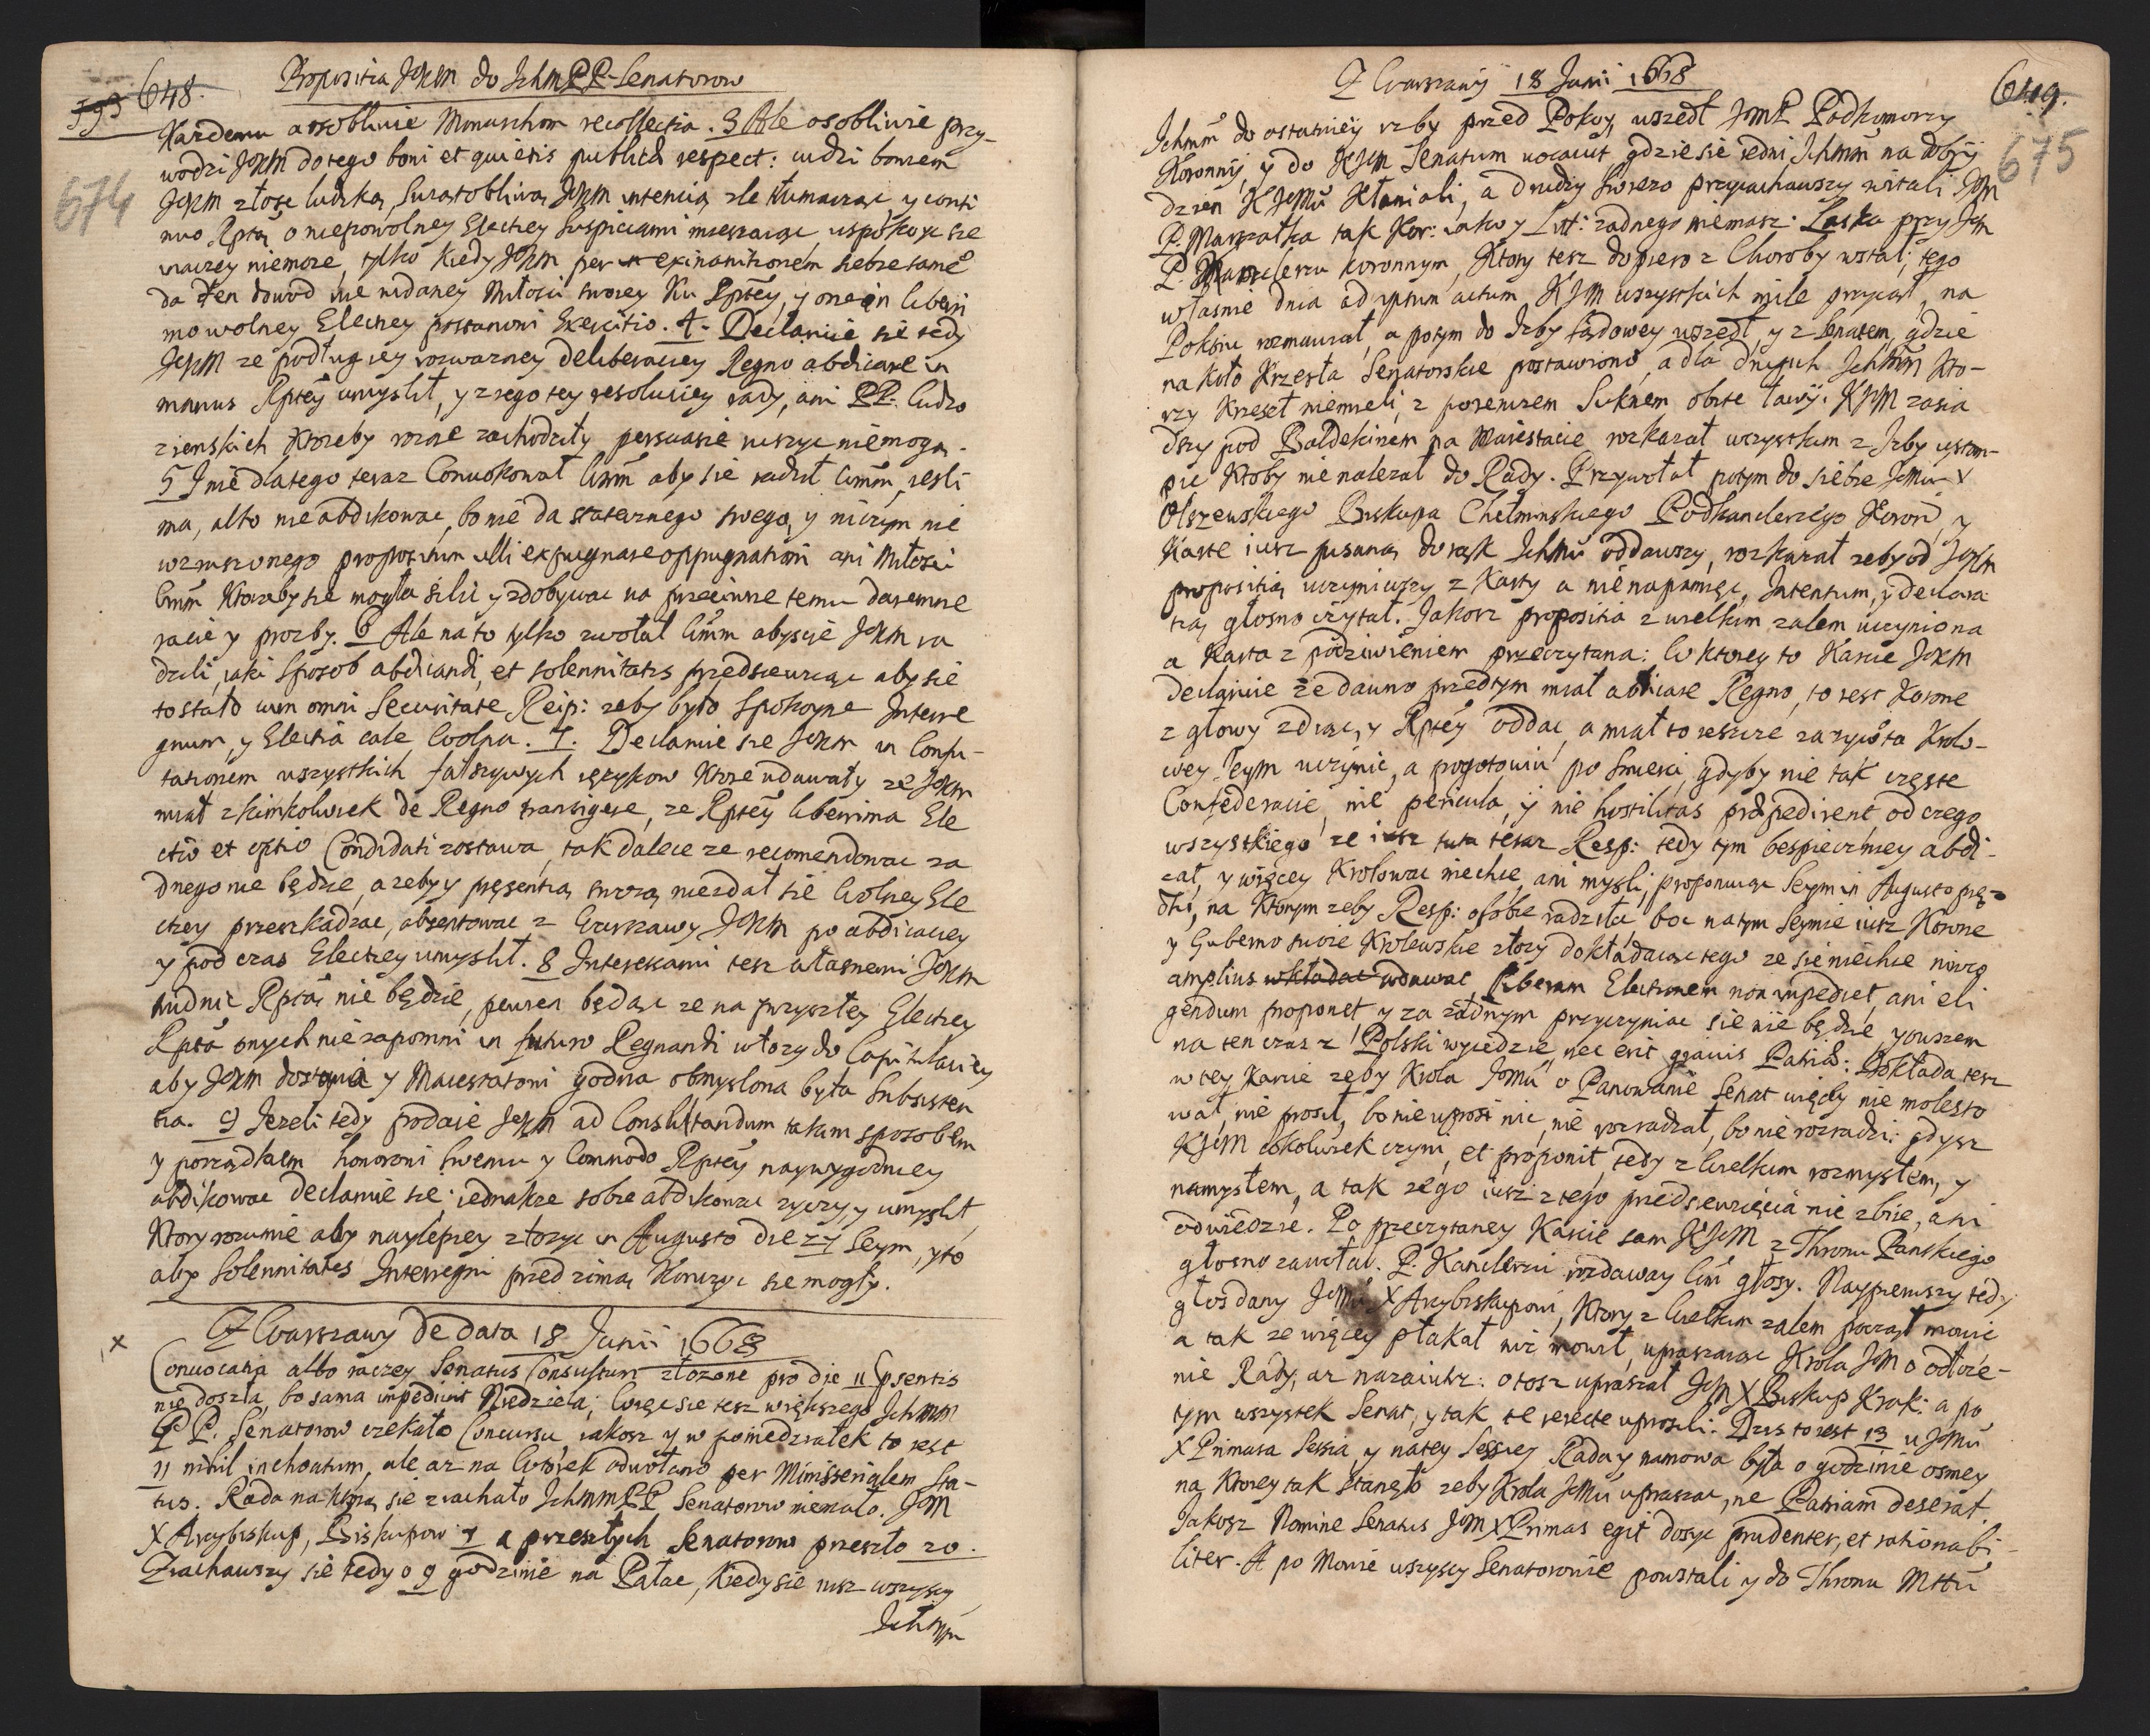 593 648. Propositia JKM do Ichm PP. Senatorow
674
Kazdemu a osobliwie Monarchom recollectia. 3 Ale osobliwie przy-
wodzi JKM do tego boni et quietis publicæ respect: widzi bowiem
JKM złosc ludzką, Swiątobliwą JKM intencią zle tłumacząc y conti
nuo Rptą o niepowolney Electiey suspiciami mieszaiąc, uspokoyc sie
inaczey niemoze, tylko kiedy JKM per exinanitionem siebie samego
da ten dowod nie udaney Miłosci swoiey ku Rptey, y one in liberri
mo wolney Electiey postanowi Exercitio. 4. Declaruie sie tedy
JKM ze podługiey rozwazney deliberaciey Regno abdicare in
manus Rptey umyslił, y z tego tey resoluciey rady, ani PP. Cudzo
ziemskich ktoreby rozne zachodziły persuasie ruszyc niemogą.
5 I nie dlatego teraz Conuokował Wmm aby sie radził Wmm, iesli
ma, albo nie abdikowac, bo nie da statecznego swego, y niczym nie
wzruszonego propositum ulli expugnare oppugnationi ani Miłosci
Wmm ktoraby sie mogła silic y zdobywac na przeciwne temu daremne
racie y prozby. 6 Ale na to tylko zwołał Wmm abyscie JKM ra
dzili, iaki sposob abdicandi, et solennitatis przedsiewziąc aby sie
to stało cum omni Securitate Reip: zeby było spokoyne Interre
gnum, y Electia cale Wolna. 7. Declaruie sie JKM in Confu-
tationem wszystkich fałszywych ięzykow ktore udawały ze JKM
miał z kimkolwiek de Regno transigere, ze Rptey liberrima Ele
ctio et optio Candidati zostawa, tak dalece ze recomendowac za
dnego nie będzie, a zeby y pręsentią swoią niezdał sie Wolney Ele
ctiey przeszkadzac, absentowac z Warszawy JKM po abdicaciey
y pod czas Electiey umyslił. 8 Interessami tesz własnemi JKM
trudnic Rptą nie będzie, pewien będąc ze na przyszłey Electiey
Rpta onych nie zapomni in futuro Regnandi włozy do Capitulaciey
aby JKM dostoyna y Maiestatowi godna obmyslona była Subsisten
tia. 9 Jezeli tedy podaie JKM ad Consultandum takim sposobem
y porządkiem honorowi swemu y Commodo Rptey naywygodniey
abdikowac declaruie sie; iednakze sobie abdikowac zyczy y umyslił,
Ktory rozumie aby naylepiey złozyc in Augusto die 27 Seym, y to
aby Solennitates Interregni przed zimą konczyc sie mogły.
x Z Warszawy de data 18 Junii 1668
Conuocatia albo raczey Senatus Consultum złozone pro die 11 psentis
nie doszła, bo sama impediuit Niedziela; Więc sie tesz większego Ichmm
PP. Senatorow czekało Concursu, iakosz y w poniedziałek to iest
11 nihil inchoatum, ale az na Wtorek odwołano per Ministerialem Sta-
tus. Rada na ktorą sie ziachało Ichmm PP. Senatorow niemało. JM
X Arcybiskup, Biskupow 7 a przeszłych Senatorow przeszło 20.
Ziachawszy sie tedy o 9 godzinie na Pałac, kiedy sie iusz wszyscy
Ichmm
Z Warszawy 18 Junii 1668 649.
675
Ichmm do ostatniey izby przed Pokoy, wszedł JmP Podkomorzy
Koronny, y do JKM Senatum uocauit gdzie sie iedni Ichmm na dobry
dzien KJMu kłaniali, a drudzy swiezo przyiachawszy witali JM
P. Marszałka tak Kor: iako y Litt: zadnego niemasz: Laska przy Jm
P. Kanclerzu koronnym, Ktory tesz dopiero z Choroby wstał; tego
własnie dnia ad ipsum actum, KJM wszystkich mile przyiął, na
Pokoiu rozmawiał, a potym do Izby sądowey wszedł, y z Senatem, gdzie
na koło krzesła Senatorskie postawiono, a dla drugich Ichmm kto-
rzy krzeseł niemieli, z poremzem Suknem obite ławy. KJM zasia
dszy pod Baldekinem na Maiestacie rozkazał wszystkim z Izby ustąm-
pic ktoby nie nalezał do Rady. Przywołał potym do siebie JeMu X
Olszewskiego Biskupa Chełminskiego Podkanclerzego Koron, y
Karte iusz pisaną do rąk Ichmu oddawszy, rozkazał zeby od JKM
propositią uczyniwszy z Karty a nie napamięc, Intentum, y declara
tią głosno czytał. Jakosz propositia z wielkim zalem uczyniona
a Karta z podziwieniem przeczytana: W ktorey to Karcie JKM
declaruie ze dawno przedtym miał abdicare Regno, to iest Korone
z głowy zdiąc, y Rptey oddac, a miał to ieszcze za zywota Krolo-
wey Ieym uczynic, a pogotowiu po smierci, gdyby nie tak częste
Confederacie, nie pericula, y nie hostilitas præpedirent od czego
wszystkiego ze iusz tuta teraz Resp: tedy tym bespieczniey abdi-
cat, y więcey Krolowac niechce, ani mysli, proponuiąc Seym in Augusto prę-
dki, na ktorym zeby Resp: o sobie radziła, bo na tym Seymie iusz Korone
y Guberno swoie Krolewskie złozy dokładaiąc tego ze sie niechce niwco
amplius wkładac wdawac, liberam Electionem non impediet, ani eli
gendum proponet y za zadnym przyczyniac sie nie będzie, y owszem
na ten czas z Polski wyiedzie, nec erit grauis Patriæ: Dokłada tesz
w tey Karcie zeby Krola JeMu o Panowanie Senat więcey nie molesto
wał, nie prosił, bo nie uprosi nic, nie rozradzał, bo nie rozradzi: gdysz
KJM cokolwiek czyni, et proponit, tedy z Wielkim rozmysłem, y
namysłem, a tak iego iusz z tego przedsiewzięcia nie zbie, ani
odwiedzie. Po przeczytaney Karcie sam KJM z Thronu Panskiego
głosno zawołał. P. Kanclerzu rozdaway Wm głosy. Naypierwszy tedy
głos dany JeMu X Arcybiskupowi, Ktory z Wielkim zalem począł mowic
a tak ze więcey płakał niz mowił, upraszaiąc Krola JM o odłoze-
nie Rady, az nazaiutrz: o tosz upraszał JM X Biskup Krak: a po
tym wszystek Senat, y tak te rerecte uprosili. Dzis to iest 13 u JeMu
X Primasa Sessia, y na tey Sessiey Rada y namowa była o godzinie osmey
na ktorey tak stanęło zeby Krola JeMu upraszac, ne Patriam deserat.
Jakosz Nomine Senatus JM X Primas egit dosyc prudenter, et rationabi-
liter. A po Mowie wszyscy Senatorowie powstali y do Thronu Mttu